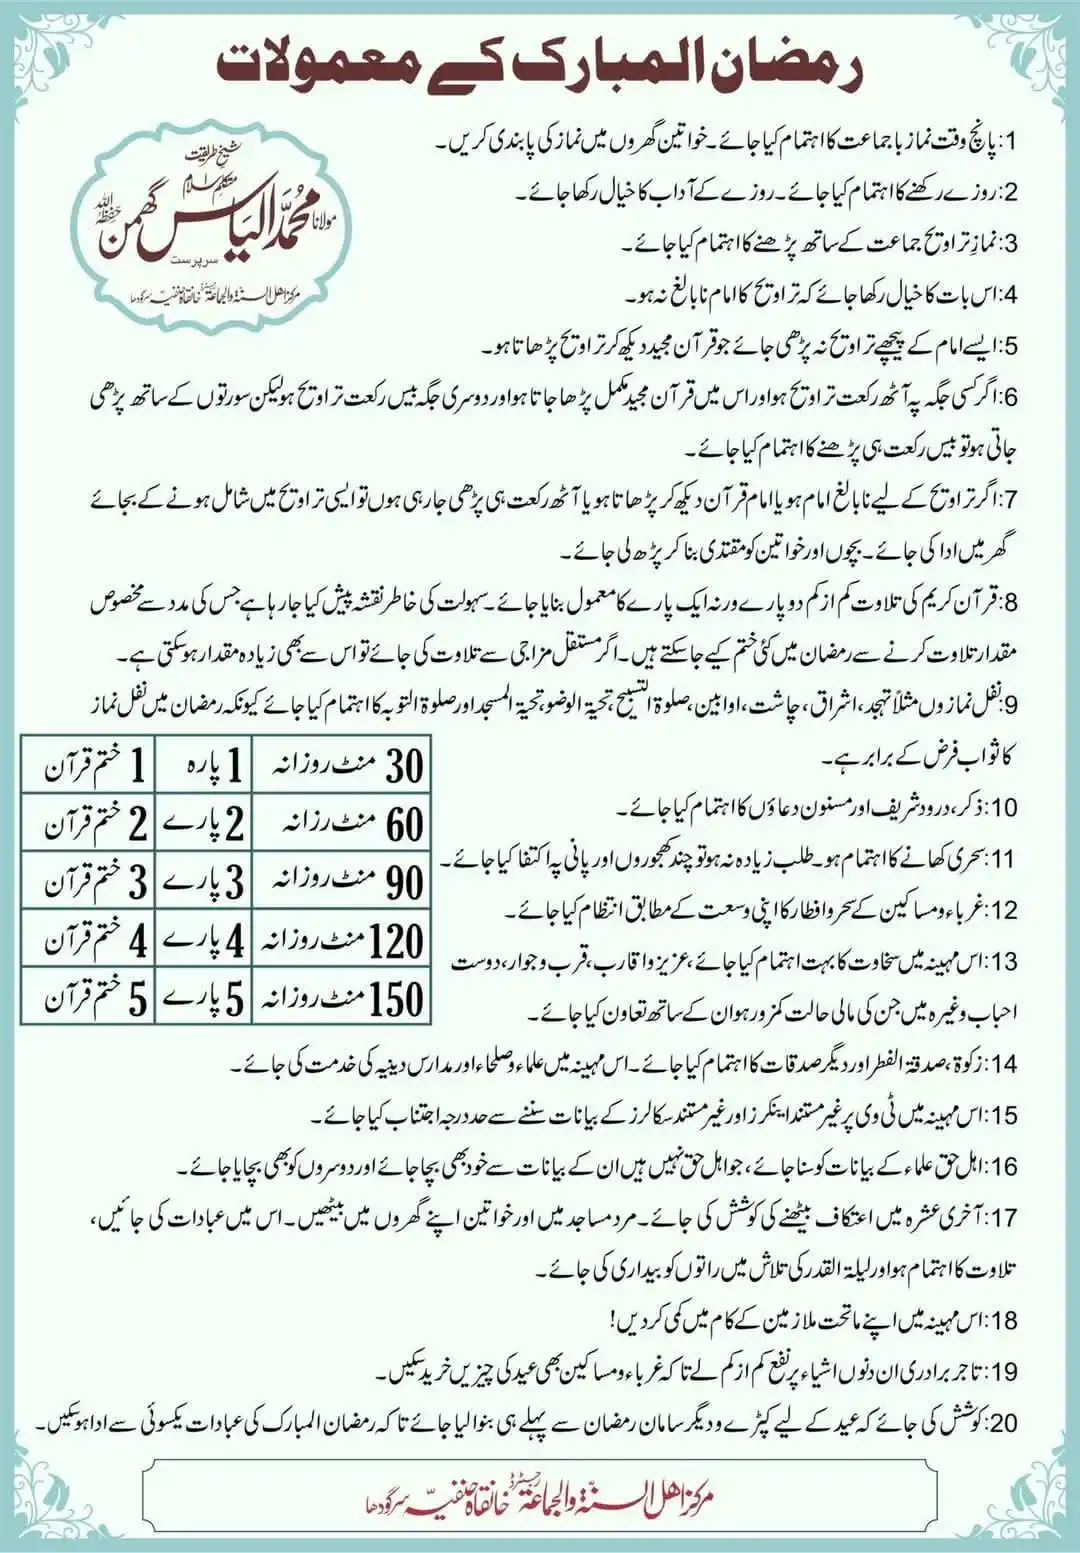 رمضان المبارک کے معمولات
شیخ طریقت
متکلم اسلام
مولانا محمد الیاس گھمن حفظہ اللہ
سرپرست
مرکز اھل السنۃ والجماعۃ رجسٹرڈ خانقاہ حنفیہ سرگودھا
1: پانچ وقت نماز با جماعت کا اہتمام کیا جائے۔ خواتین گھروں میں نماز کی پابندی کریں۔
2: روزے رکھنے کا اہتمام کیا جائے۔ روزے کے آداب کا خیال رکھا جائے۔
3: نمازِ تراویح جماعت کے ساتھ پڑھنے کا اہتمام کیا جائے۔
4: اس بات کا خیال رکھا جائے کہ تراویح کا امام نابالغ نہ ہو۔
5: ایسے امام کے پیچھے تراویح نہ پڑھی جائے جو قرآن مجید دیکھ کر تراویح پڑھاتا ہو۔
6: اگر کسی جگہ پہ آٹھ رکعت تراویح ہو اور اس میں قرآن مجید مکمل پڑھا جاتا ہو اور دوسری جگہ بیس رکعت تراویح ہو لیکن سورتوں کے ساتھ پڑھی
جاتی ہو تو بیس رکعت ہی پڑھنے کا اہتمام کیا جائے۔
7: اگر تراویح کے لیے نابالغ امام ہو یا امام قرآن دیکھ کر پڑھاتا ہو یا آٹھ رکعت ہی پڑھی جا رہی ہوں تو ایسی تراویح میں شامل ہونے کے بجائے
گھر میں ادا کی جائے۔ بچوں اور خواتین کو مقتدی بنا کر پڑھ لی جائے۔
8: قرآن کریم کی تلاوت کم از کم دو پارے ورنہ ایک پارے کا معمول بنایا جائے۔ سہولت کی خاطر نقشہ پیش کیا جا رہا ہے جس کی مدد سے مخصوص
مقدار تلاوت کرنے سے رمضان میں کئی ختم کیے جا سکتے ہیں۔ اگر مستقل مزاجی سے تلاوت کی جائے تو اس سے بھی زیادہ مقدار ہو سکتی ہے۔
9: نفل نمازوں مثلاً تہجد، اشراق، چاشت، اوابین، صلوۃ التسبیح، تحیۃ الوضو، تحیۃ المسجد اور صلوۃ التوبہ کا اہتمام کیا جائے کیونکہ رمضان میں نفل نماز
کا ثواب فرض کے برابر ہے۔
30 منٹ روزانہ 1 پارہ 1 ختم قرآن
60 منٹ رزانہ 2 پارے 2 ختم قرآن
90 منٹ روزانہ 3 پارے 3 ختم قرآن
120 منٹ روزانہ 4 پارے 4 ختم قرآن
150 منٹ روزانہ 5 پارے 5 ختم قرآن
10: ذکر، درود شریف اور مسنون دعاؤں کا اہتمام کیا جائے۔
11: سحری کھانے کا اہتمام ہو۔ طلب زیادہ نہ ہو تو چند کھجوروں اور پانی پہ اکتفا کیا جائے۔
12: غرباء و مساکین کے سحر و افطار کا اپنی وسعت کے مطابق انتظام کیا جائے۔
13: اس مہینہ میں سخاوت کا بہت اہتمام کیا جائے، عزیز و اقارب، قرب و جوار، دوست
احباب وغیرہ میں جن کی مالی حالت کمزور ہو ان کے ساتھ تعاون کیا جائے۔
14: زکوۃ، صدقۃ الفطر اور دیگر صدقات کا اہتمام کیا جائے۔ اس مہینہ میں علماء و صلحاء اور مدارس دینیہ کی خدمت کی جائے۔
15: اس مہینہ میں ٹی وی پر غیر مستند اینکرز اور غیر مستند سکالرز کے بیانات سننے سے حد درجہ اجتناب کیا جائے۔
16: اہل حق علماء کے بیانات کو سنا جائے، جو اہل حق نہیں ہیں ان کے بیانات سے خود بھی بچا جائے اور دوسروں کو بھی بچایا جائے۔
17: آخری عشرہ میں اعتکاف بیٹھنے کی کوشش کی جائے۔ مرد مساجد میں اور خواتین اپنے گھروں میں بیٹھیں۔ اس میں عبادات کی جائیں،
تلاوت کا اہتمام ہو اور لیلۃ القدر کی تلاش میں راتوں کو بیداری کی جائے۔
18: اس مہینہ میں اپنے ماتحت ملازمین کے کام میں کمی کر دیں!
19: تاجر برادری ان دنوں اشیاء پر نفع کم از کم لے تاکہ غرباء و مساکین بھی عید کی چیزیں خرید سکیں۔
20: کوشش کی جائے کہ عید کے لیے کپڑے و دیگر سامان رمضان سے پہلے ہی بنوا لیا جائے تاکہ رمضان المبارک کی عبادات یکسوئی سے ادا ہو سکیں۔
مرکز اھل السنۃ والجماعۃ رجسٹرڈ خانقاہ حنفیہ سرگودھا